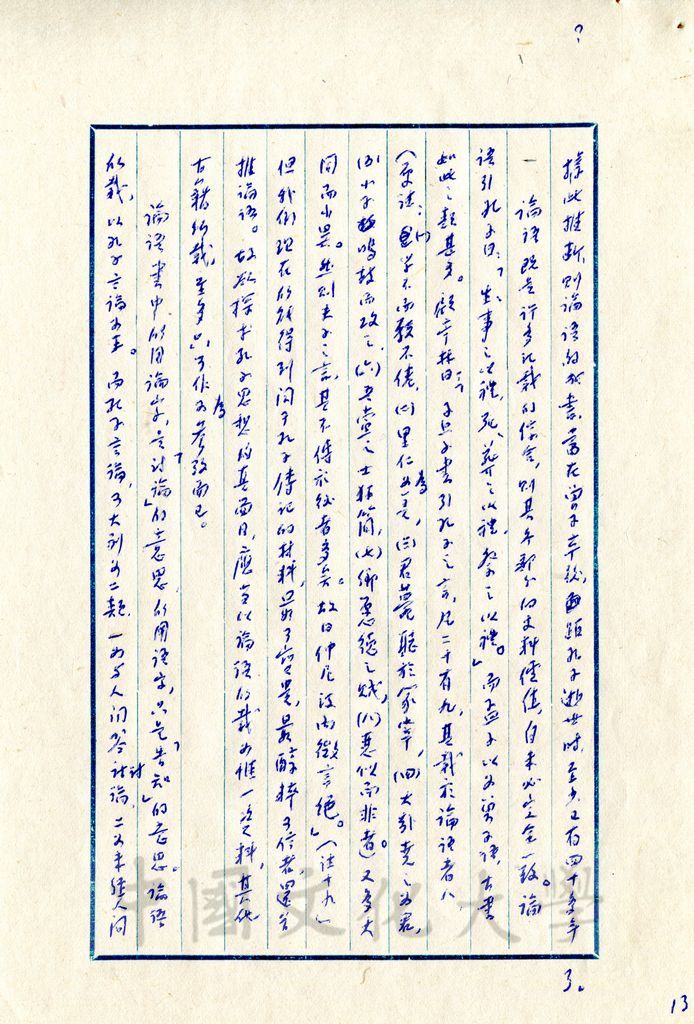 據此推斷,則論語的成書,當在曾子卒後,距孔子逝世時,至少已有四十多年
了。
一 論語既是許多記載的綜合,則其各部分的史料價值,自未必完全一致。論
語引孔子曰:「生,事之以禮,死,葬之以禮,祭之以禮。」而孟子以為曾子語,古書
如此之類甚多。顧亭林曰:「孟子書引孔子之言,凡二十有九,其載於論語者八
(原注:(一)學不而厭教不倦,(二)里仁為美,(三)君薨聽於冢宰,(四)大哉堯之為君,
(五)小子鳴鼓而攻之,(六)吾黨之士狂簡,(七)鄉愿德之賊,(八)惡似而非者)又多大
同而小異。然則夫子之言,其不傳於後者多矣。故曰仲尼沒而微言絕。」(注十九)
但我們現在所能得到關于孔子傳記的材料,最可寶貴,最醇粹可信者,還當
推論語。故欲探求孔子思想的真面目,應當以論語所載為惟一資料,其他
古籍所載,至多只可作為參攷而已。
論語書中所用論字,是「討論」的意思所用語字,只是「告知」的意思。論語
所載,以孔子言論為主。而孔子言論,可大別為二類,一為與人問答討論,二為未經人問
13
中國文化大學